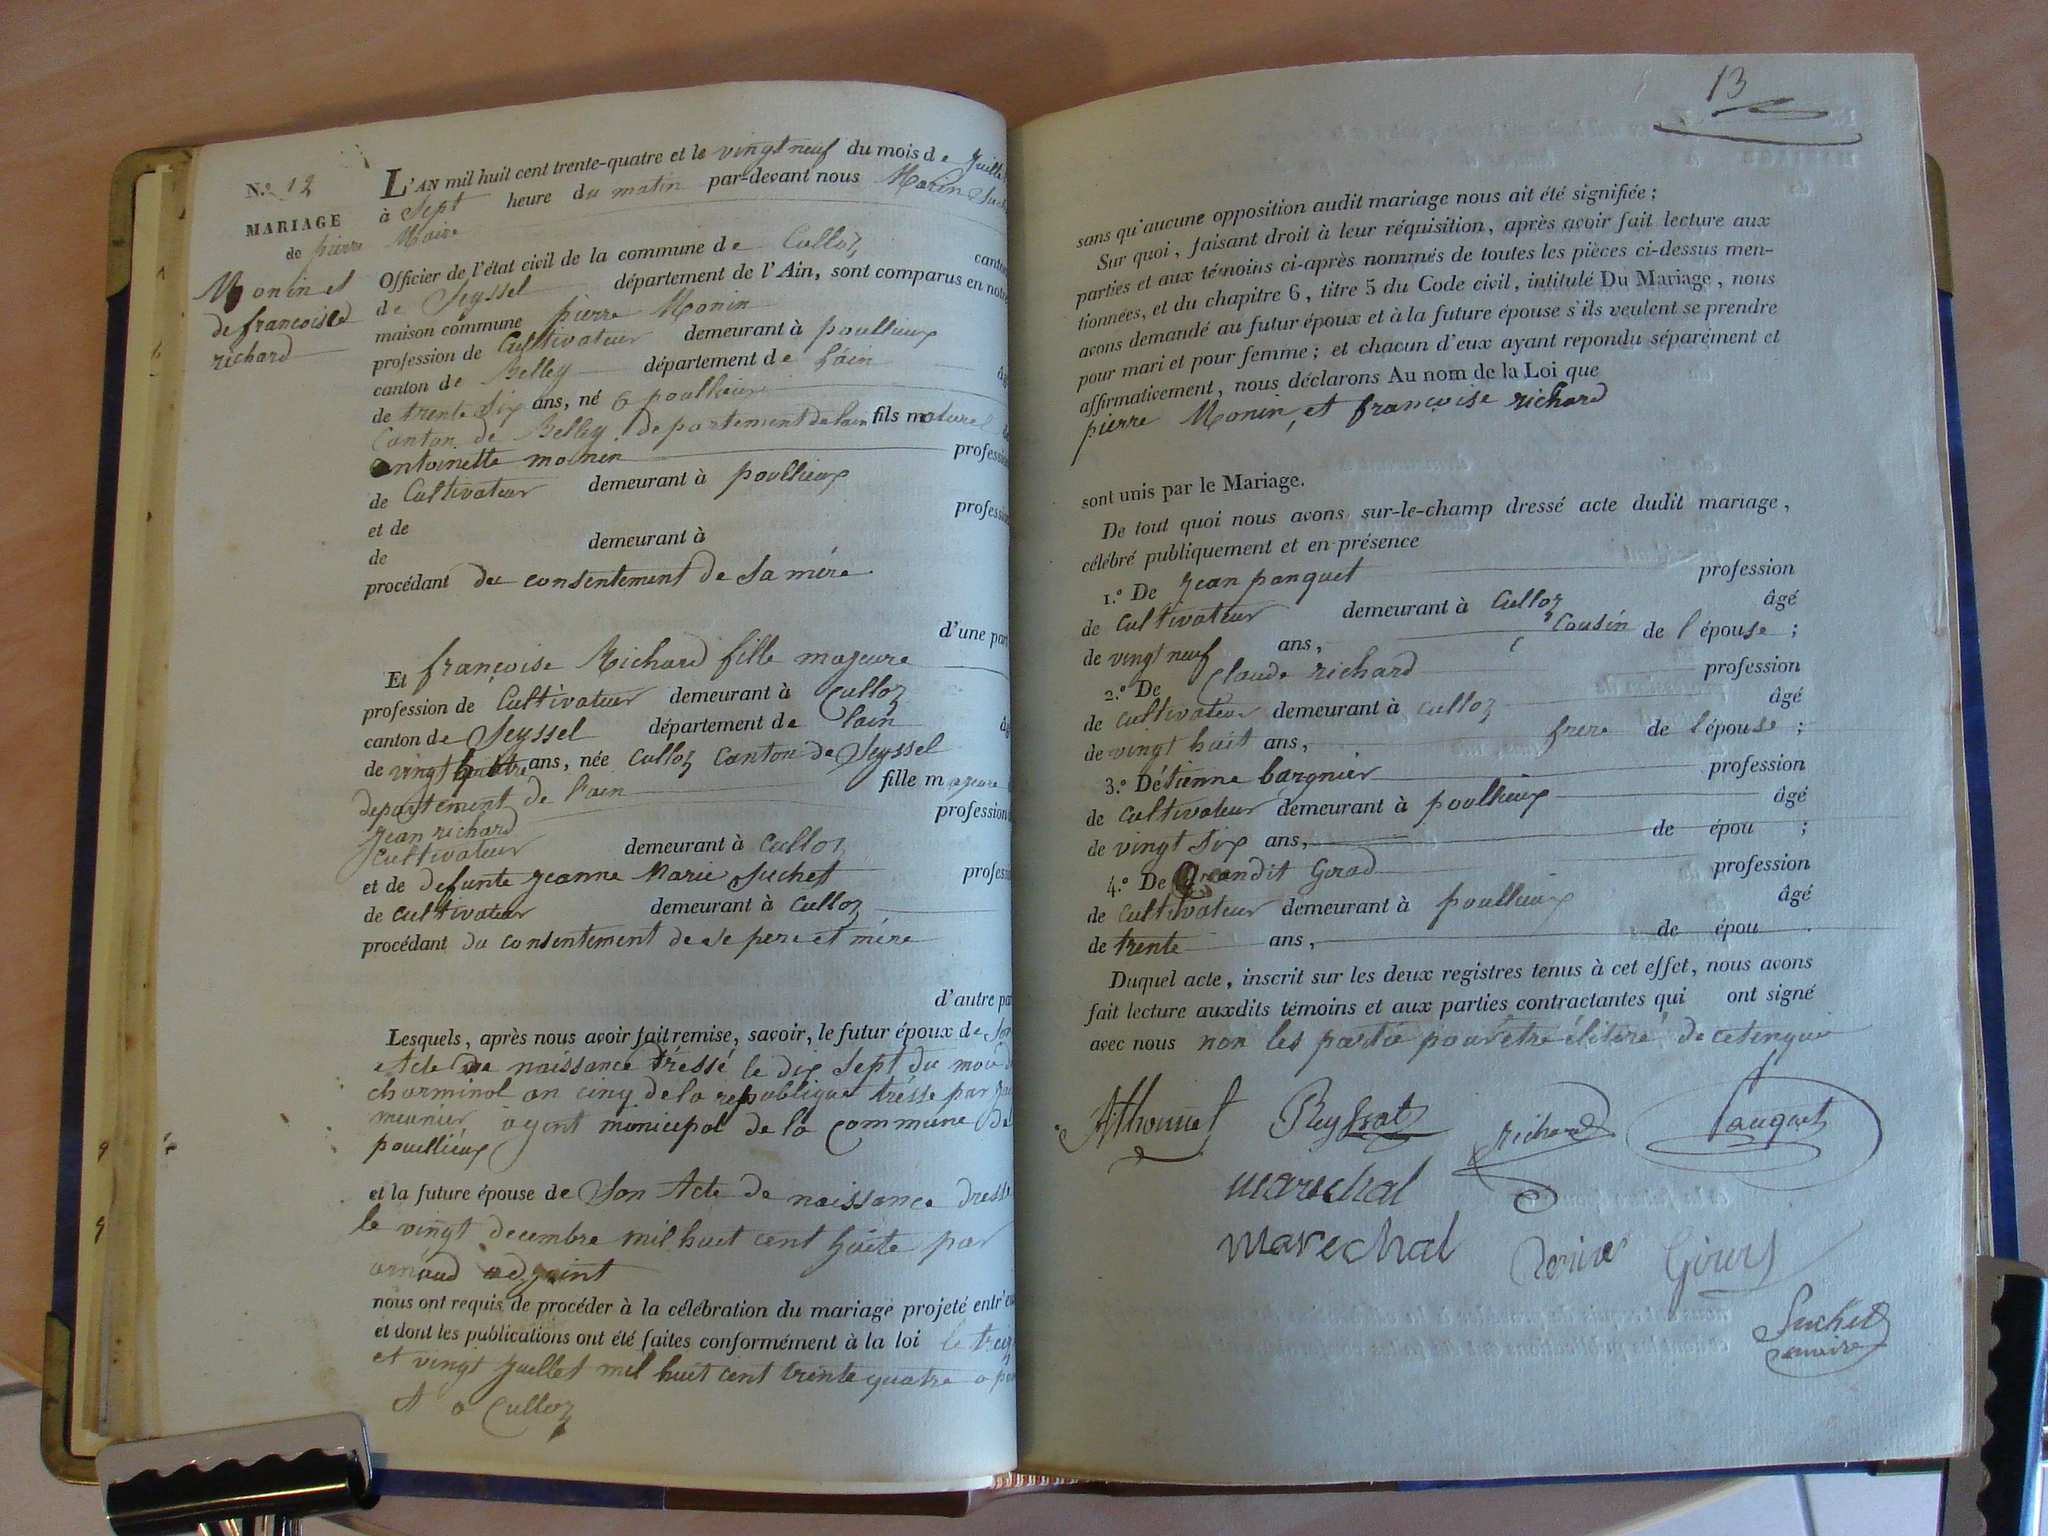 N.º 12
MARIAGE
de pierre
Monin et
de francoise
richard
L'AN mil huit cent trente-quatre et le vingt neuf du mois de Juille
à Sept heure du matin par-devant nous Marin Such
Maire
Officier de l'état civil de la commune de Culloz canton
de Seyssel département de l'Ain, sont comparus en notre
maison commune pierre Monin
profession de Cultivateur demeurant à poullieux
canton de Belley département de l'ain âg
de trente Six ans, né a poullieux
Canton de Belley departement de lain fils naturel de
antoinette monin professio
de Cultivateur demeurant à poullieux
et de professio
de demeurant à
procédant du consentement de sa mére
d'une part
Et françoise Richard fille majeure
profession de Cultivateur demeurant à Culloz
canton de Seyssel département de lain âg
de vingt ans, née Culloz Canton de Seyssel
departement de l'ain fille majeure
Jean richard profession d
Cultivateur demeurant à Culloz
et de defunte Jeanne Marie Suchet profess
de cultivateur demeurant à Culloz
procédant du consentement de se pere et mére
d'autre par
Lesquels, après nous avoir fait remise, savoir, le futur époux de Son
Acte de naissance tréssé le dix sept du moi d
charminal an cinq de la republique trésse par
meunier agent municipal de la commune de
pouellieux
et la future épouse de Son Acte de naissance dresse
le vingt decembre mil huit cent huite par
arnaud adjoint
nous ont requis de procéder à la célébration du mariage projeté entr'eu
et dont les publications ont été faites conformément à la loi le treiz
et vingt Juillet mil huit cent trente quatre a po
et a Culloz
13
sans qu'aucune opposition audit mariage nous ait été signifiée ;
Sur quoi, faisant droit à leur réquisition, après avoir fait lecture aux
parties et aux témoins ci-après nommés de toutes les pièces ci-dessus men-
tionnées, et du chapitre 6, titre 5 du Code civil, intitulé Du Mariage, nous
avons demandé au futur époux et à la future épouse s'ils veulent se prendre
pour mari et pour femme ; et chacun d'eux ayant répondu séparément et
affirmativement, nous déclarons Au nom de la Loi que
pierre Monin, et françoise richard
sont unis par le Mariage.
De tout quoi nous avons sur-le-champ dressé acte dudit mariage,
célébré publiquement et en présence
1.º De Jean panquet profession
de Cultivateur demeurant à Culloz âgé
de vingt neuf ans, Cousin de l'épouse ;
2.º De Claude richard profession
de cultivateur demeurant à culloz âgé
de vingt huit ans, frere de lépouse ;
3.º Détienne bargnier profession
de cultivateur demeurant à poullieux âgé
de vingt six ans, de épou ;
4.º De profession
de Cultivateur demeurant à poullieux âgé
de trente ans, de épou .
Duquel acte, inscrit sur les deux registres tenus à cet effet, nous avons
fait lecture auxdits témoins et aux parties contractantes qui ont signé
avec nous non les partie pour étre élitéré de cetenquie
AThonnet Peyssat richard Pauquet
marechal
marechal Girard
Suchet
maire